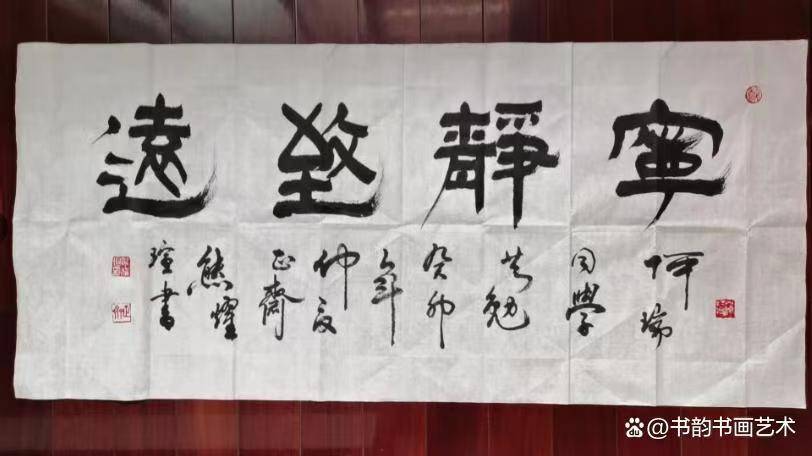 寧靜致遠
坪瑜
同學
共勉
癸卯
年
仲夏
正齋
熊耀
瑄書
@书韵书画艺术